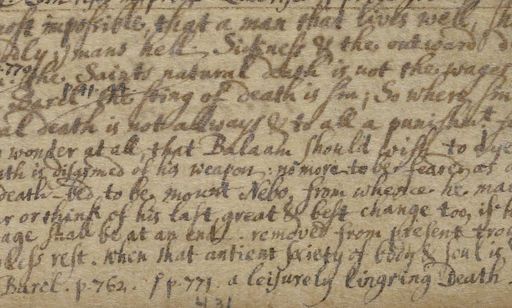 most impossible, that a man that lives well, sh
mans hell. Sickness & the outward d
the Saints natural death is not the wages
Barcl. p 111. The sting of death is sin; So where sin
al death is not allways & to all a punishment
wonder at all, that Balaam should wish to dye
ath is disarmed of his weapon. no more to be feared, as
death-bed to be mount Nebo, from whence he may
ar or think of his last, great & best change too, if
age shall be at an end. remove from present trou
bless rest. when that antient society of body & soul is
Barcl. p. 762. p. 771. a leisurely lingring Death
431